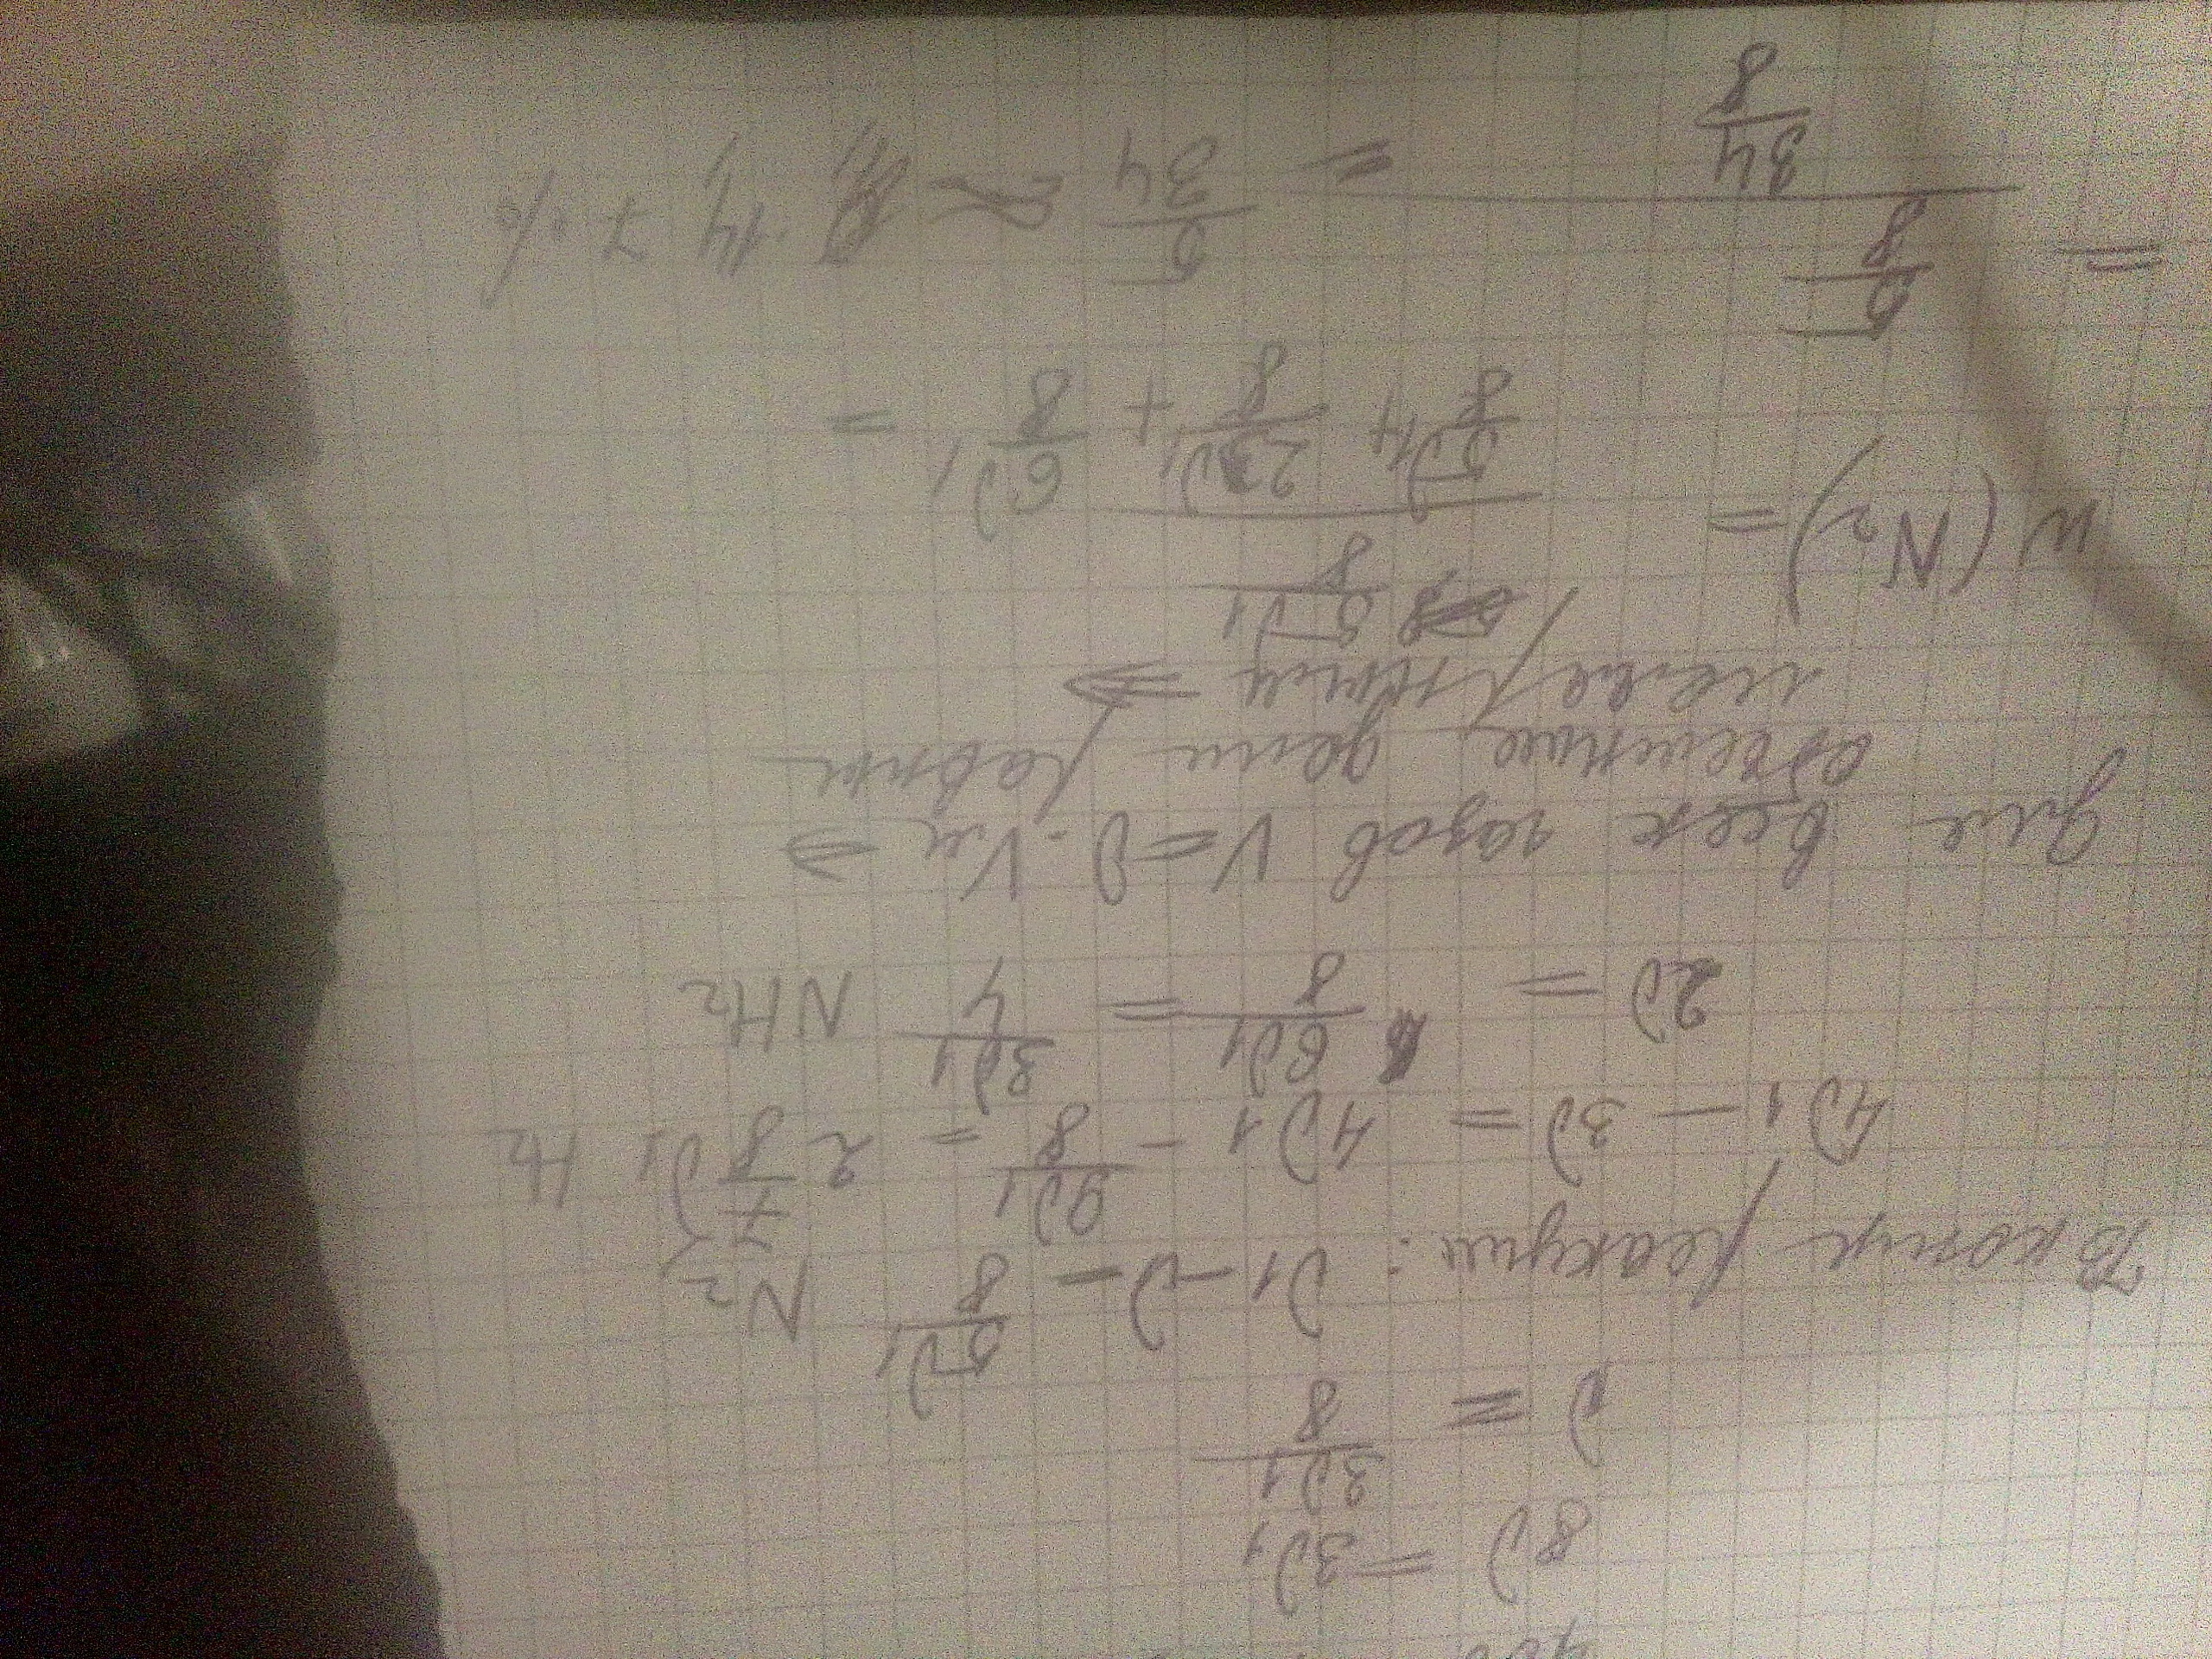 8ν = 3ν1
ν = 3ν1/8
В конце реакции: ν1 - ν = 5ν1/8 N2
4ν1 - 3ν = 4ν1 - 9ν1/8 = 2 7/8 ν1 H2
2ν = 6ν1/8 = 3ν1/4 NH2
для всех газов V = ν · Vм ⇒
объемные доли равны
⇒
w(N2) = (5ν1/8) / (5ν1/8 + 23ν1/8 + 6ν1/8) =
= (5/8) / (34/8) = 5/34 ≈ 14,7%